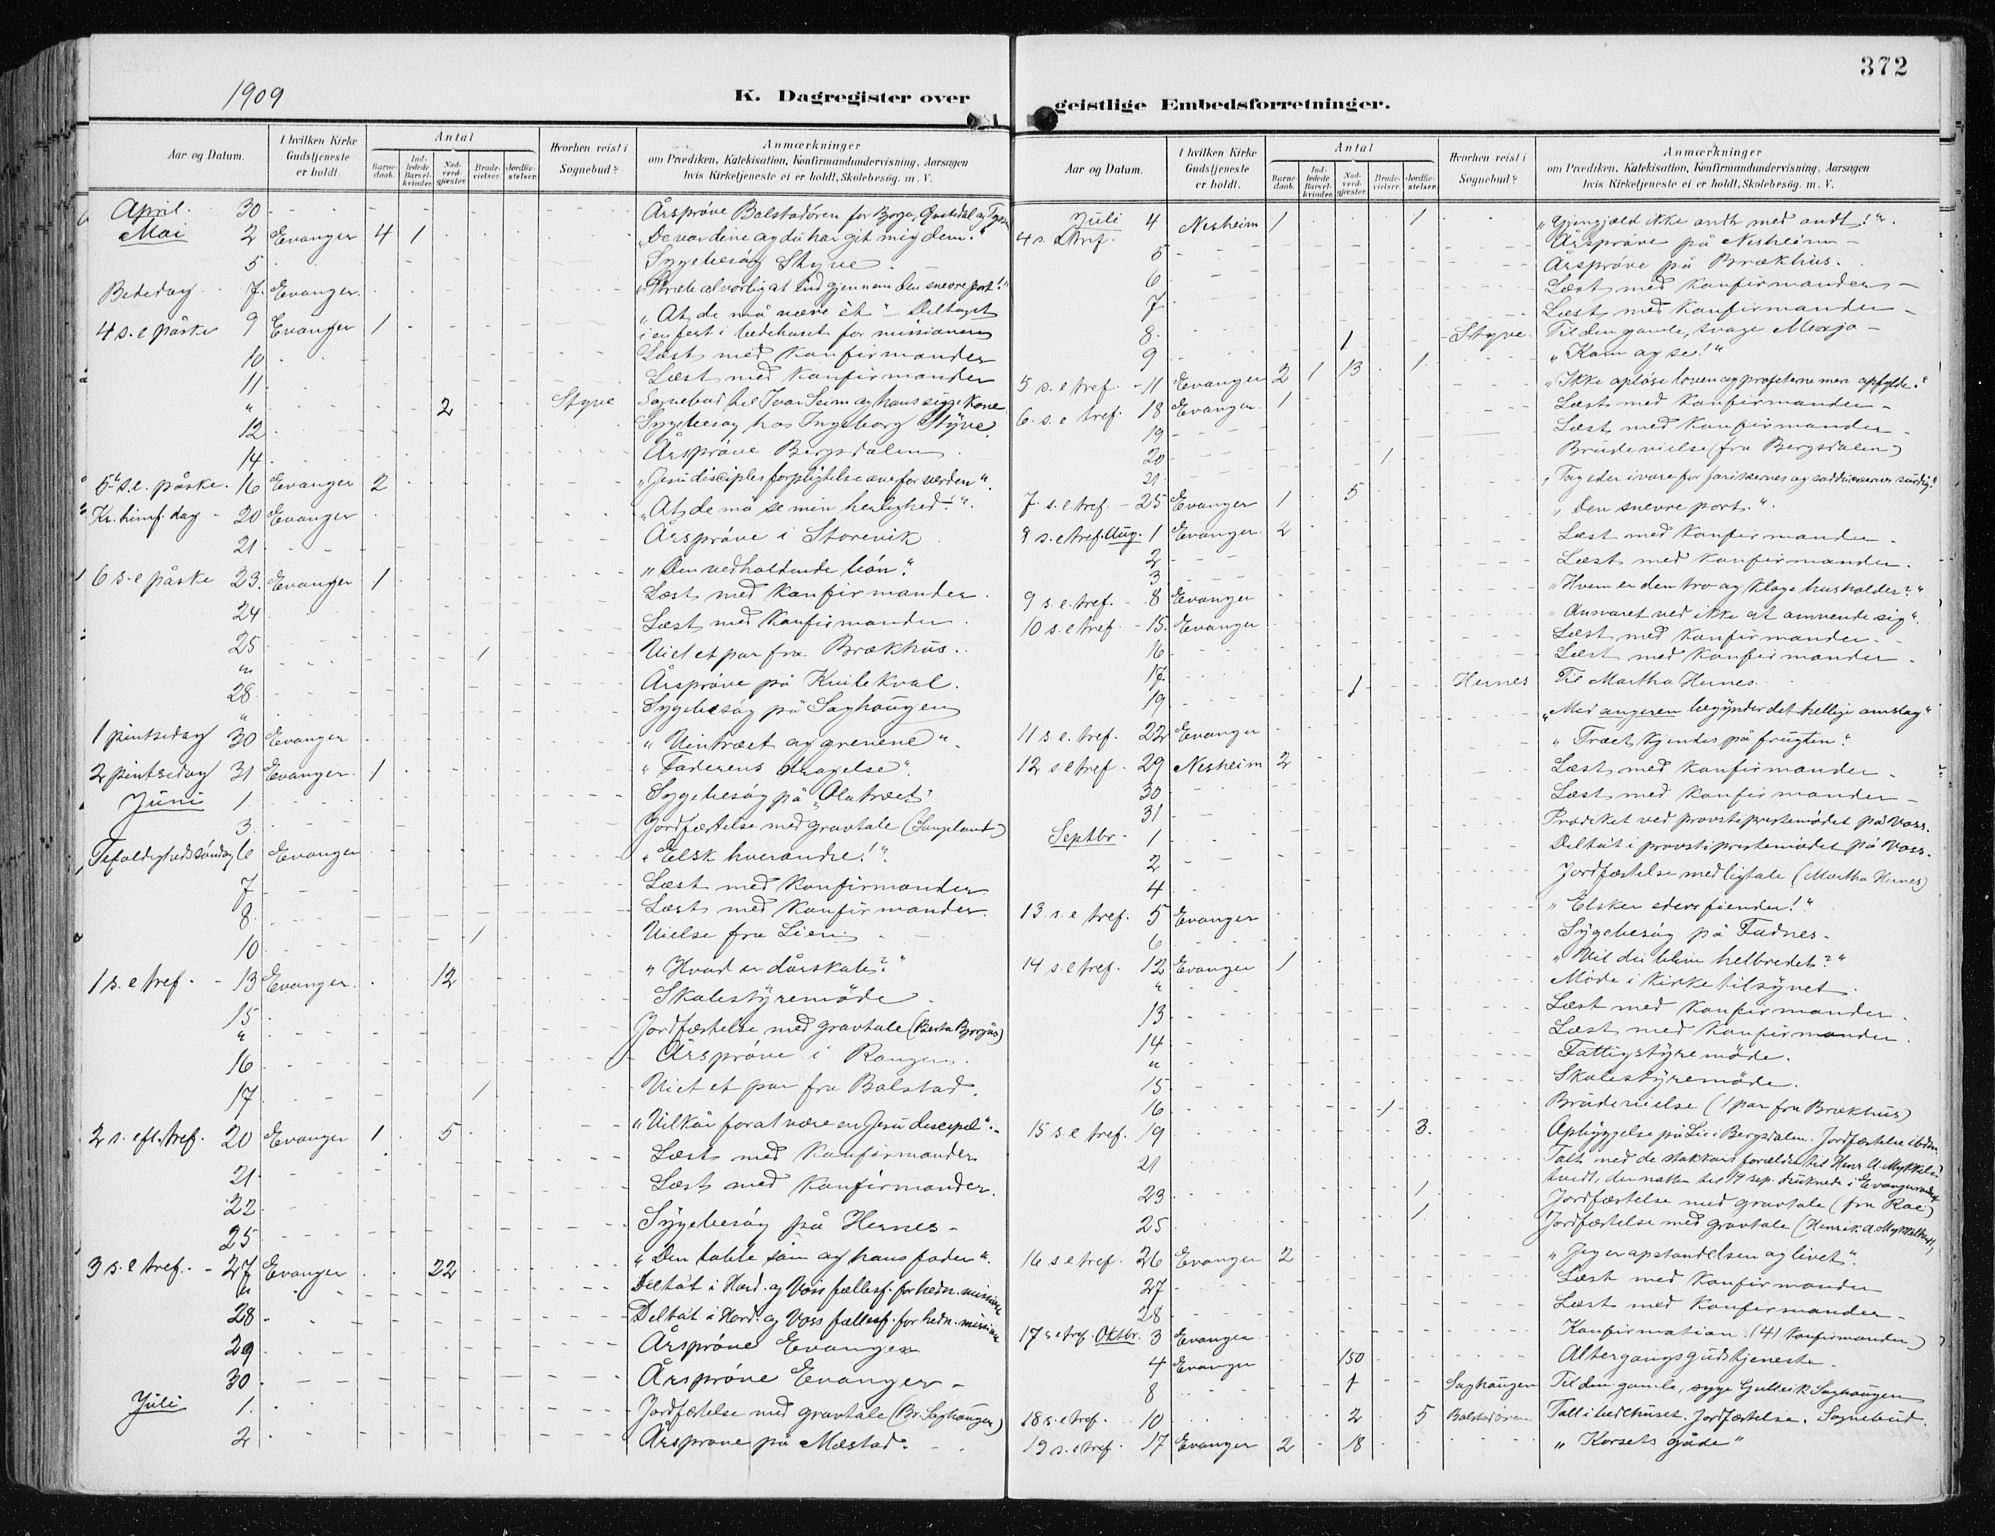 372
1909
K. Dagregister over geistlige Embedsforretninger.
Aar og Datum. I hvilken Kirke Gudstjeneste er holdt. Antal Barnedaab. Indledede Barselkvinder. Nadverdgjæster. Brudevielser. Jordfæstelser. Hvorhen reist i Sognebud? Anmærkninger om Prædiken, Katekisation, Konfirmandundervisning, Aarsagen hvis Kirketjeneste ei er holdt, Skolebesøg m. V.
April 30 Årsprøve Bolstadøren for
Mai 2 Evanger 4 1 "De var dine og du har git mig dem."
5 Sygebesøg Styve
Bededag 7 Evanger "Stræb alvorlig at ind gjennem den snevre port!"
4 s. e påske 9 Evanger 1 "At de må være ét" Deltaget
i en fest i bedehuset for missionen
10 Læst med konfirmander
11 Læst med konfirmander
" 2 Styve Sognebud til Ivar Seim og hans syge kone
12 Sygebesøg hos Ingeborg Styve.
14 Årsprøve Bergsdalen
5 s. e. påske 16 Evanger 2 "Jesu disciples forpligtelse overfor verden".
Kr. himf. dag 20 Evanger "At de må se min herlighed!".
21 Årsprøve i Storevik
6 s. e påske 23 Evanger 1 "Den vedholdende bøn."
24 Læst med konfirmander
25 Læst med konfirmander
" 1 Viet et par fra Brækhus.
28 Årsprøve på Kvilekval.
" Sygebesøg på Saghaugen
1 pintsedag 30 Evanger "Vintræet og grenene".
2 pintsedag 31 Evanger 1 "Faderens dragelse".
Juni 1 Sygebesøg på
3 Jordfæstelse med gravtale
Trefoldighedssøndag 6 Evanger "Elsk hverandre!".
7 Læst med konfirmander
8 Læst med konfirmander.
10 1 Vielse fra Lien
1 s. e tref. 13 Evanger 12 "Hvad er dårskab?"
15 Skolestyremøde
" Jordfæstelse med gravtale
16 Årsprøve i
17 1 Viet et par fra Bolstad.
2 s. eft. tref. 20 Evanger 1 5 "Vilkår for at være en Jesu discipel".
21 Læst med konfirmander
22 Læst med konfirmander.
25 Sygebesøg på Hernes
3 s. e tref. 27 Evanger 22 "Den tabte søn og hans fader".
" Deltåt i Hard. og Voss fællesf. for hedn. mission
28 Deltåt i Hard. og Voss fællesf. for hedn. mission
29 Årsprøve Evanger
30 Årsprøve Evanger
Juli 1 Jordfæstelse med gravtale (Br. Saghaugen)
2 Årsprøve på Mestad.
Aar og Datum. I hvilken Kirke Gudstjeneste er holdt. Antal Barnedaab. Indledede Barselkvinder. Nadverdgjæster. Brudevielser. Jordfæstelser. Hvorhen reist i Sognebud? Anmærkninger om Prædiken, Katekisation, Konfirmandundervisning, Aarsagen hvis Kirketjeneste ei er holdt, Skolebesøg m. V.
Juli 4 Nesheim 1 1 "Gjengjæld ikke ondt med ondt!".
4 s. e tref.
5 Årsprøve på Nesheim
6 Årsprøve på Brækhus.
7 Læst med konfirmander
8 Læst med konfirmander
9 1 Styve Til den gamle, svage
5 s. e tref. 11 Evanger 2 1 13 1 "Kom og se!"
6 s. e tref. 18 Evanger 1 "Ikke opløse loven og profeterne men opfylde."
19 Læst med konfirmander
20 Læst med konfirmander
21 1 Brudevielse (fra Bergsdalen)
7 s. e tref. 25 Evanger 1 5 "Tag eder ivare for farisæernes og saddusæernes surdeig."
8 s. e tref. Aug. 1 Evanger 2 "Den snevre port."
2 Læst med konfirmander
3 Læst med konfirmander
9 s. e. tref. 8 Evanger "Hvem er den tro og kloge husholder?"
10 s. e tref. 15 Evanger "Ansvaret ved ikke at omvende sig".
16 Læst med konfirmander
17 Læst med konfirmander
19 1 Hernes Til Martha Hernes
11 s. e. tref. 22 Evanger "Med angeren begynder det hellige omslag"
12 s. e tref 29 Nesheim 2 "Træet kjendes på frugten."
30 Læst med konfirmander
31 Læst med konfirmander
Septbr. 1 Prædiket ved provstiprestemødet på Voss.
2 Deltåt i provstiprestemødet på Voss.
4 Jordfæstelse med ligtale (Martha Hernes)
13. s. e tref. 5 Evanger "Elsker eders fiender!"
6 Sygebesøg på Fadnes
14 s. e tref. 12 Evanger 1 "Vil du blive helbredet?"
" Møde i kirketilsynet
13 Læst med konfirmander
14 Læst med konfirmander.
" Fattigstyremøde.
15 Skolestyremøde.
16 1 Brudevielse (1 par fra Brækhus)
15 s. e tref. 19 3 Opbyggelse på Lie i Bergsdalen. Jordfæstelse
21 Talt med de stakkars forældre til Henr. A. Mykkel-
tvedt, der natten til 19 sep. druknede i Evangervandet
23 1 Jordfæstelse med gravtale
25 1 Jordfæstelse med gravtale (Henrik A. Mykkeltvedt)
16 s. e tref. 26 Evanger 2 "Jeg er opstandelsen og livet".
27 Læst med konfirmander
28 Læst med konfirmander
17 s. e tref. Oktbr. 3 Evanger Konfirmation (41 konfirmander)
4 Evanger 150 Altergangsgudstjeneste
8 1 Saghaugen Til den gamle, syge Gulleik Saghaugen
18 s. e tref. 10 2 5 Bolstadøren Talt i bedehuset. Jordfæstelse. Sognebud
19 s. e tref. 17 Evanger 2 18 "Korsets gåde"